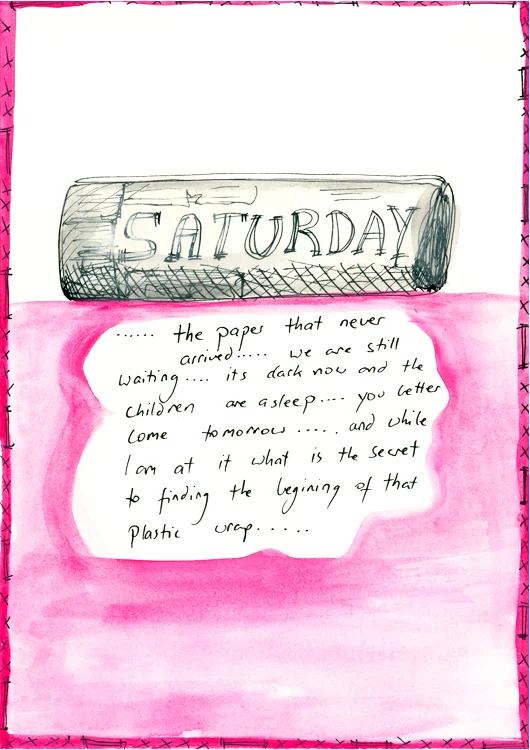 SATURDAY
...... the paper that never
arrived..... we are still
waiting.... its dark now and the
children are asleep.... you better
come tomorrow ..... and while
I am at it what is the secret
to finding the begining of that
plastic wrap......